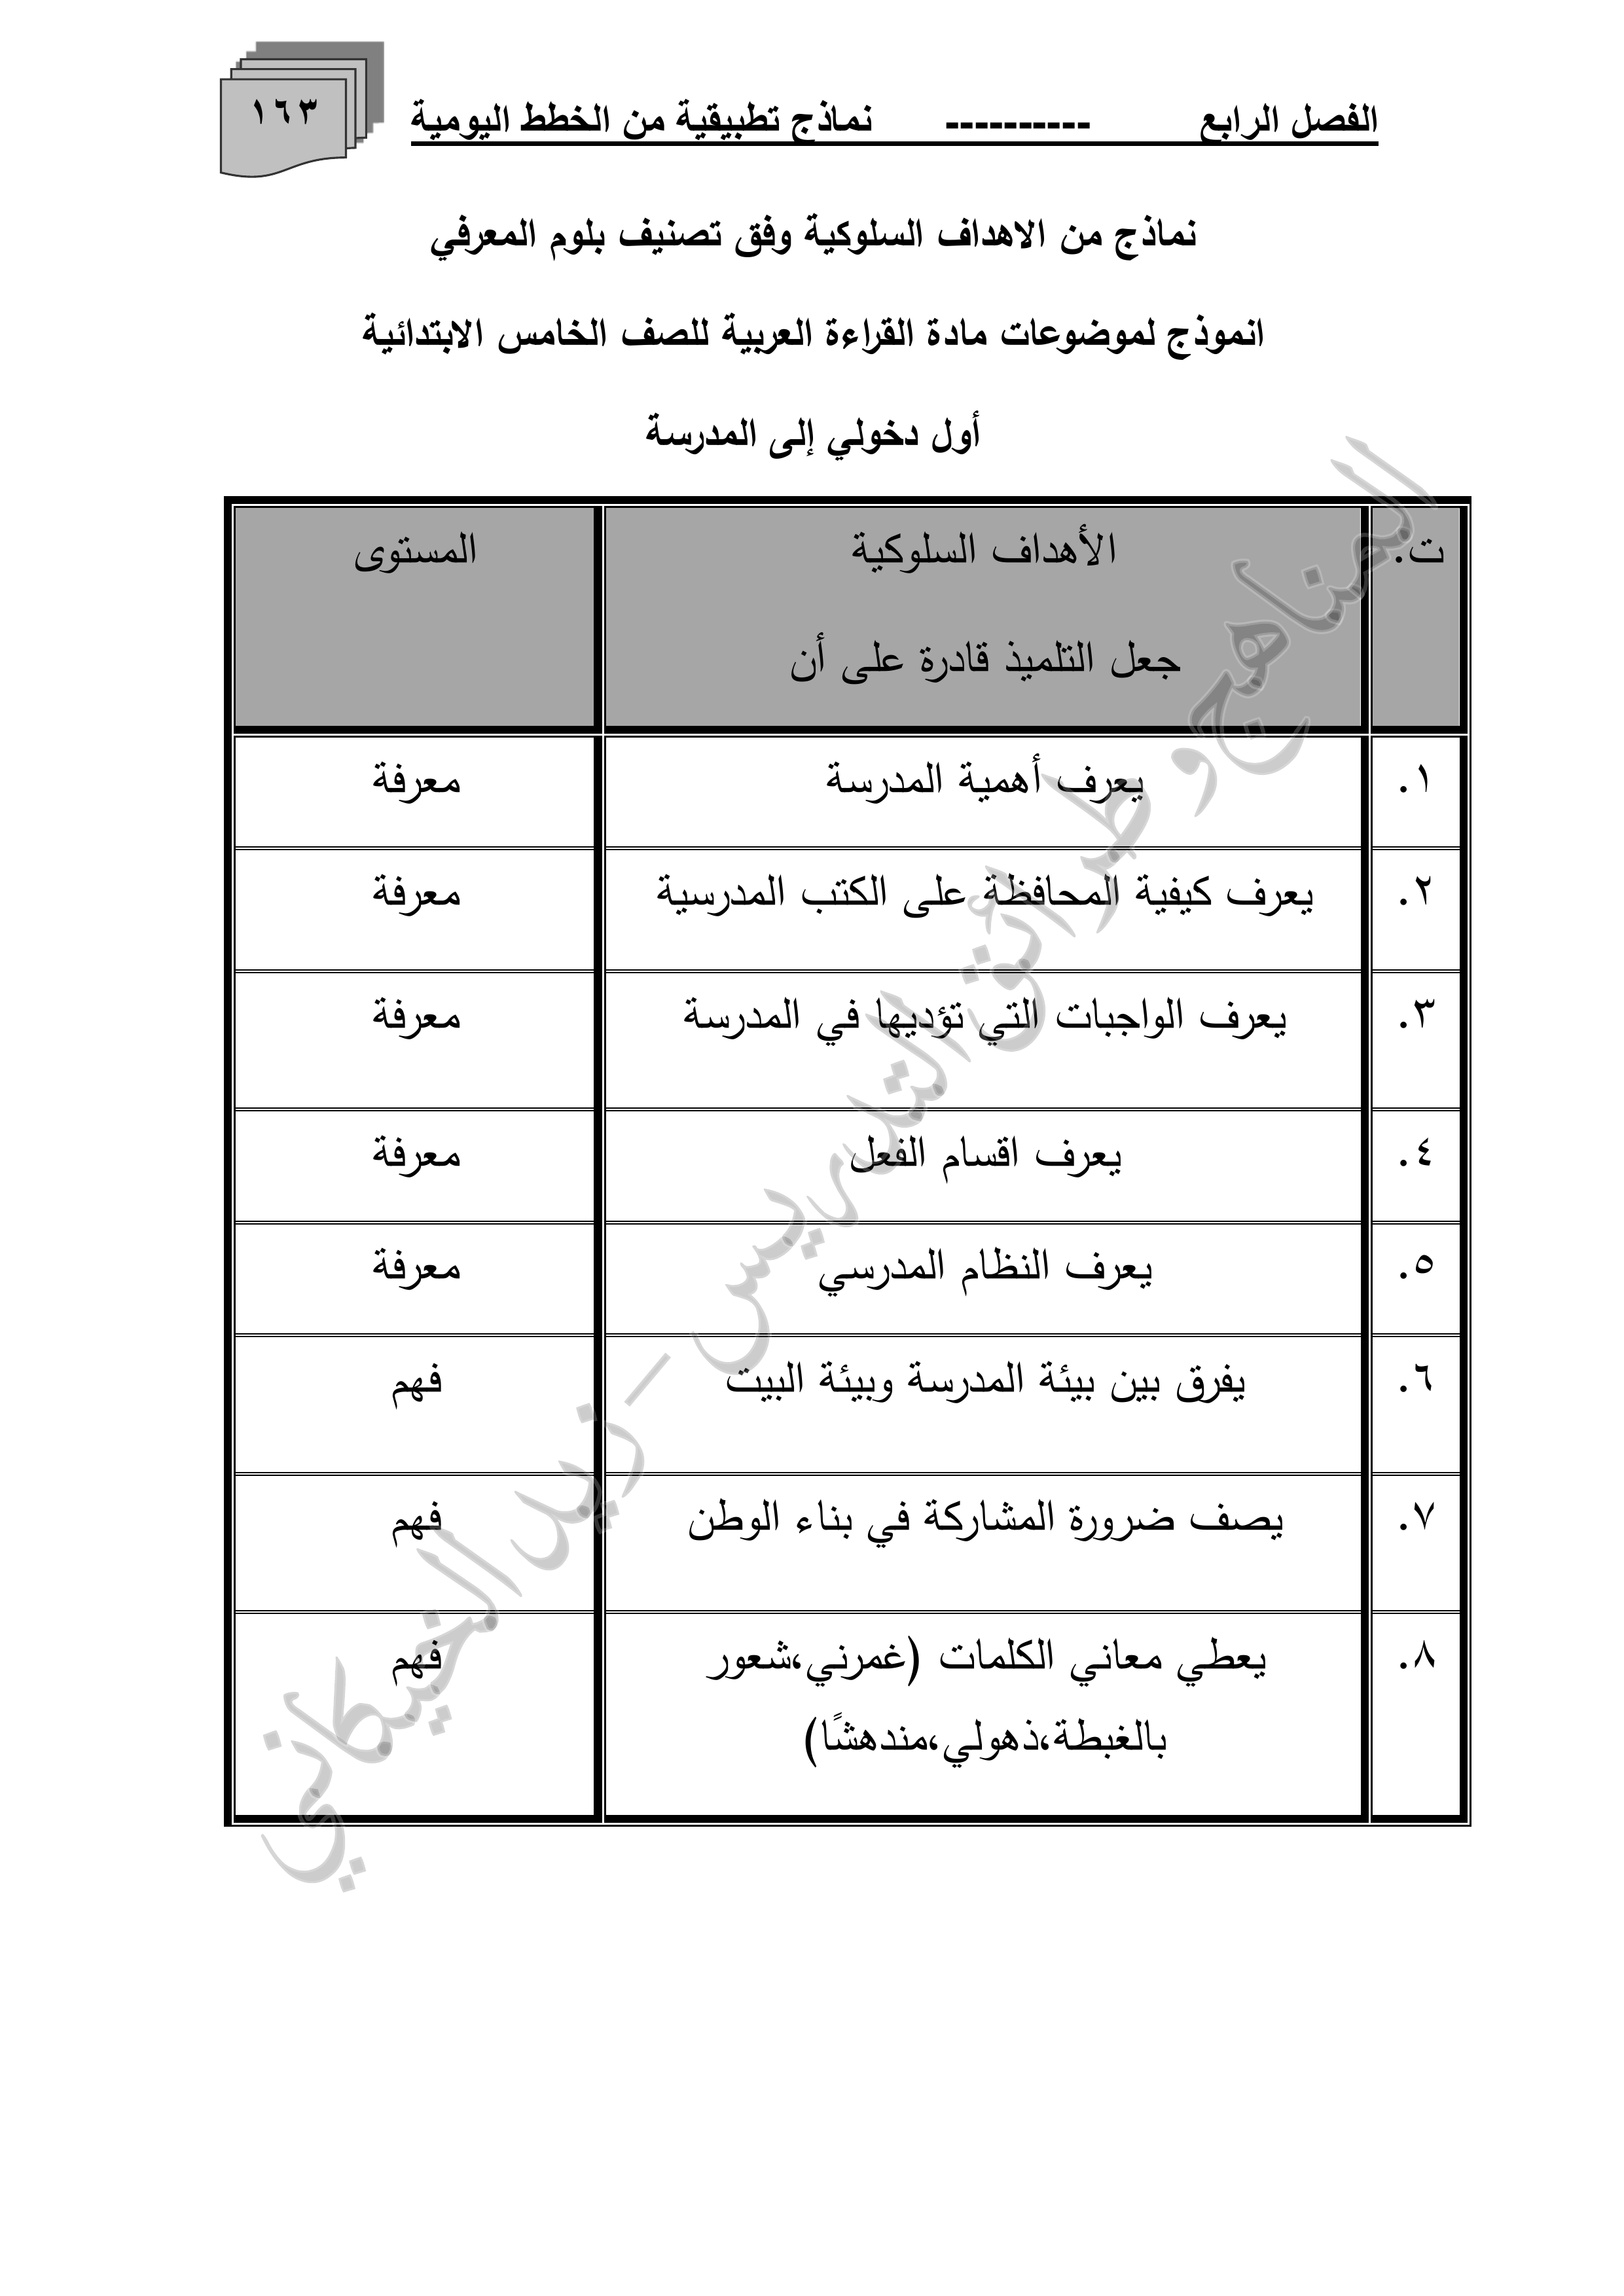 الفصل الرابع ---------- نماذج تطبيقية من الخطط اليومية
١٦٣
نماذج من الاهداف السلوكية وفق تصنيف بلوم المعرفي
انموذج لموضوعات مادة القراءة العربية للصف الخامس الابتدائية
أول دخولي إلى المدرسة
ت. الأهداف السلوكية المستوى
جعل التلميذ قادرة على أن
١. يعرف أهمية المدرسة معرفة
٢. يعرف كيفية المحافظة على الكتب المدرسية معرفة
٣. يعرف الواجبات التي تؤديها في المدرسة معرفة
٤. يعرف اقسام الفعل معرفة
٥. يعرف النظام المدرسي معرفة
٦. يفرق بين بيئة المدرسة وبيئة البيت فهم
٧. يصف ضرورة المشاركة في بناء الوطن فهم
٨. يعطي معاني الكلمات (غمرني،شعور فهم
بالغبطة،ذهولي،مندهشًا)
المناهج و طرائق التدريس – زيد الخيكاني